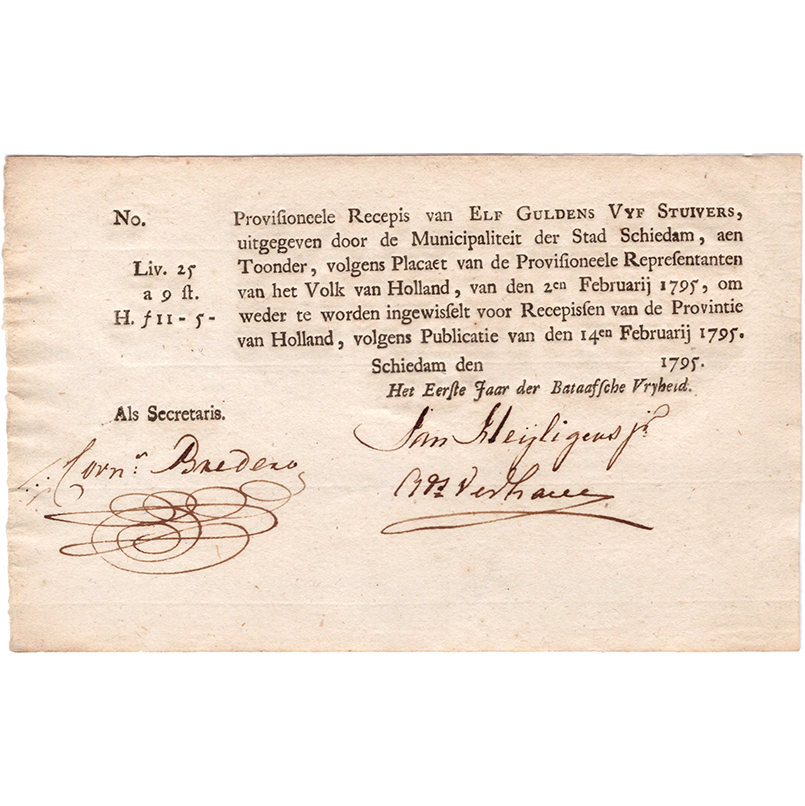 No.
Provisioneele Recepis van ELF GULDENS VYF STUIVERS,
uitgegeven door de Municipaliteit der Stad Schiedam, aen
Liv. 25
Toonder, volgens Placaet van de Provisioneele Representanten
a 9 st.
van het Volk van Holland, van den 2en Februarij 1795, om
H. ƒ11-5-
weder te worden ingewisselt voor Recepissen van de Provintie
van Holland, volgens Publicatie van den 14en Februarij 1795.
Schiedam den 1795.
Het Eerste Jaar der Bataafsche Vryheid.
Als Secretaris.
Jan Heijligers jr
Corns. Bredero
Verhaven